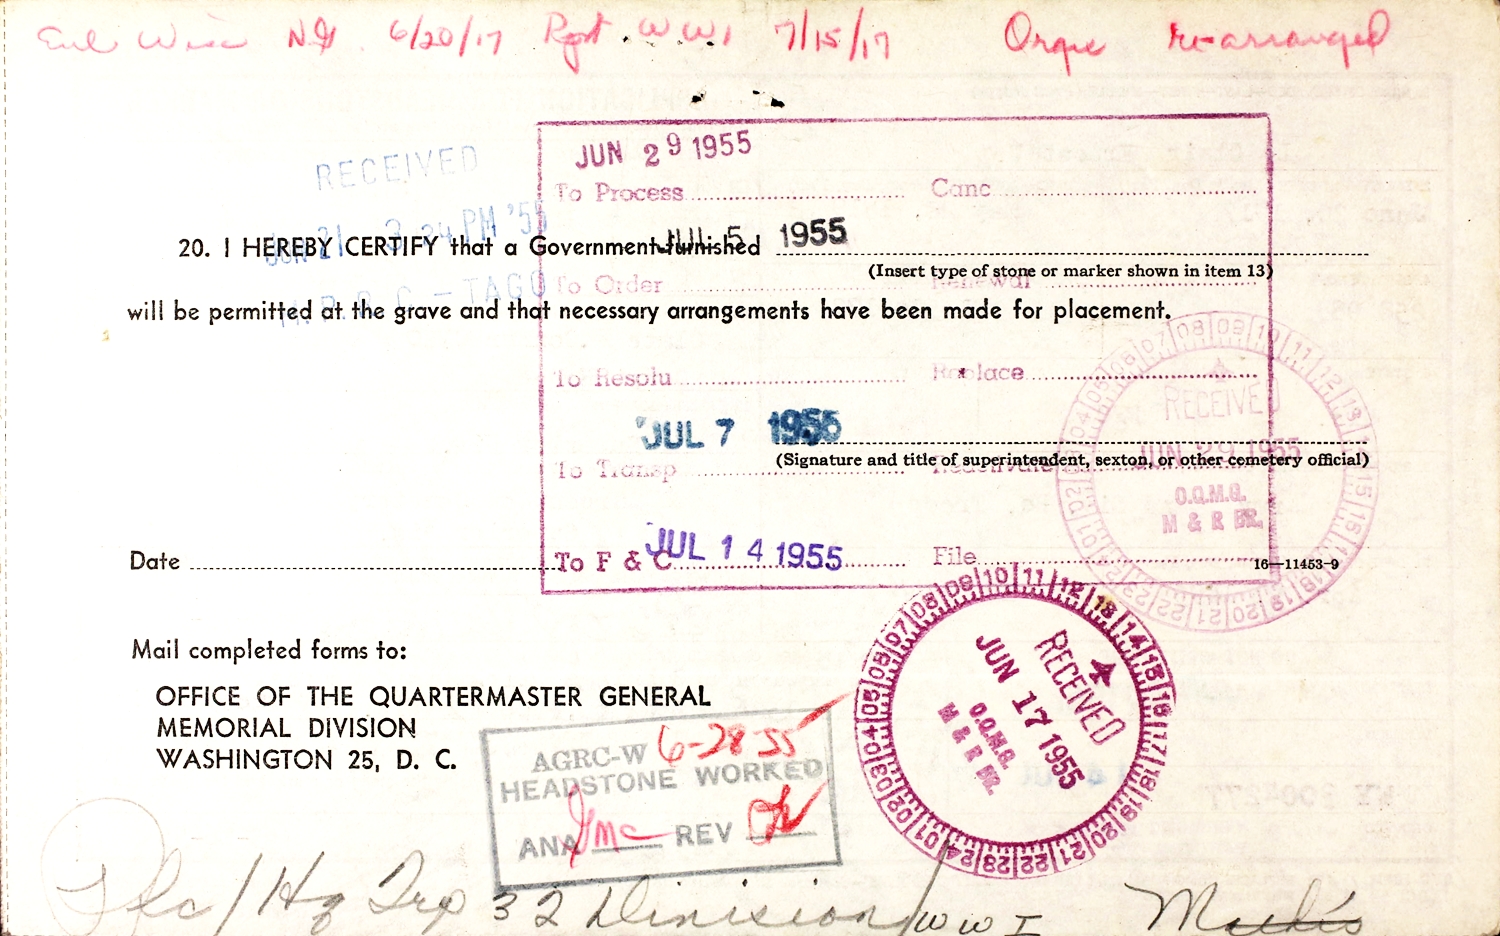 Enl Wisc NG 6/20/17 Rpt. WW1 7/15/17 Orgn rearranged
JUN 29 1955
RECEIVED
To Process Canc
JUN 21 3 24 PM '55
JUL 5 1955
20. I HEREBY CERTIFY that a Government-furnished
(Insert type of stone or marker shown in item 13)
- TAGO
To Order Renewal
will be permitted at the grave and that necessary arrangements have been made for placement.
To Resolu Replace
RECEIVED
JUN 29 1955
O.Q.M.G.
M & R BR.
JUL 7 1955
(Signature and title of superintendent, sexton, or other cemetery official)
To Transp Reactivate
JUL 14 1955
Date To F & C File
16—11453-9
Mail completed forms to:
OFFICE OF THE QUARTERMASTER GENERAL
MEMORIAL DIVISION
WASHINGTON 25, D. C.
RECEIVED
JUN 17 1955
O.Q.M.G.
M & R BR.
AGRC-W 6-28-55
HEADSTONE WORKED
ANA Jmc REV
Pfc/Hq Trp 32 Division/WW I